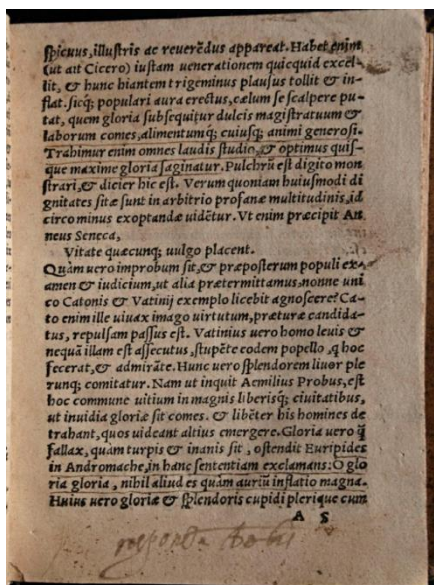 spicuus, illustris ac reuerẽdus appareat. Habet enim
(ut ait Cicero) iustam uenerationem quicquid excel-
lit, & hunc hiantem trigeminus plausus tollit & in-
flat. sicq; populari aura erectus, cælum se scalpere pu-
tat, quem gloria subsequitur dulcis magistratuum &
laborum comes, alimentumq; cuiusq; animi generosi.
Trahimur enim omnes laudis studio, & optimus quis-
que maxime gloria saginatur. Pulchrũ est digito mon
strari, & dicier hic est. Verum quoniam huiusmodi di
gnitates sitæ sunt in arbitrio profanæ multitudinis, id
circo minus exoptandæ uidẽtur. Vt enim præcipit An
neus Seneca,
Vitate quæcunq; uulgo placent.
Quàm uero improbum sit, & præposterum populi ex-
amen & iudicium, ut alia prætermittamus, nonne uni
co Catonis & Vatinij exemplo licebit agnoscere? Ca-
to enim ille uiuax imago uirtutum, præturæ candida-
tus, repulsam passus est. Vatinius uero homo leuis &
nequã illam est assecutus, stupẽte eodem popello, q hoc
fecerat, & admirãte. Hunc uero splendorem liuor ple
runq; comitatur. Nam ut inquit Aemilius Probus, est
hoc commune uitium in magnis liberisq; ciuitatibus,
ut inuidia gloriæ sit comes. & libẽter his homines de
trahant, quos uideant altius emergere. Gloria uero q̃
fallax, quàm turpis & inanis sit, ostendit Euripides
in Andromache, in hanc sententiam exclamans: O glo
ria gloria, nihil aliud es quàm auriũ inflatio magna.
Huius uero gloriæ & splendoris cupidi plerique cum
A 5